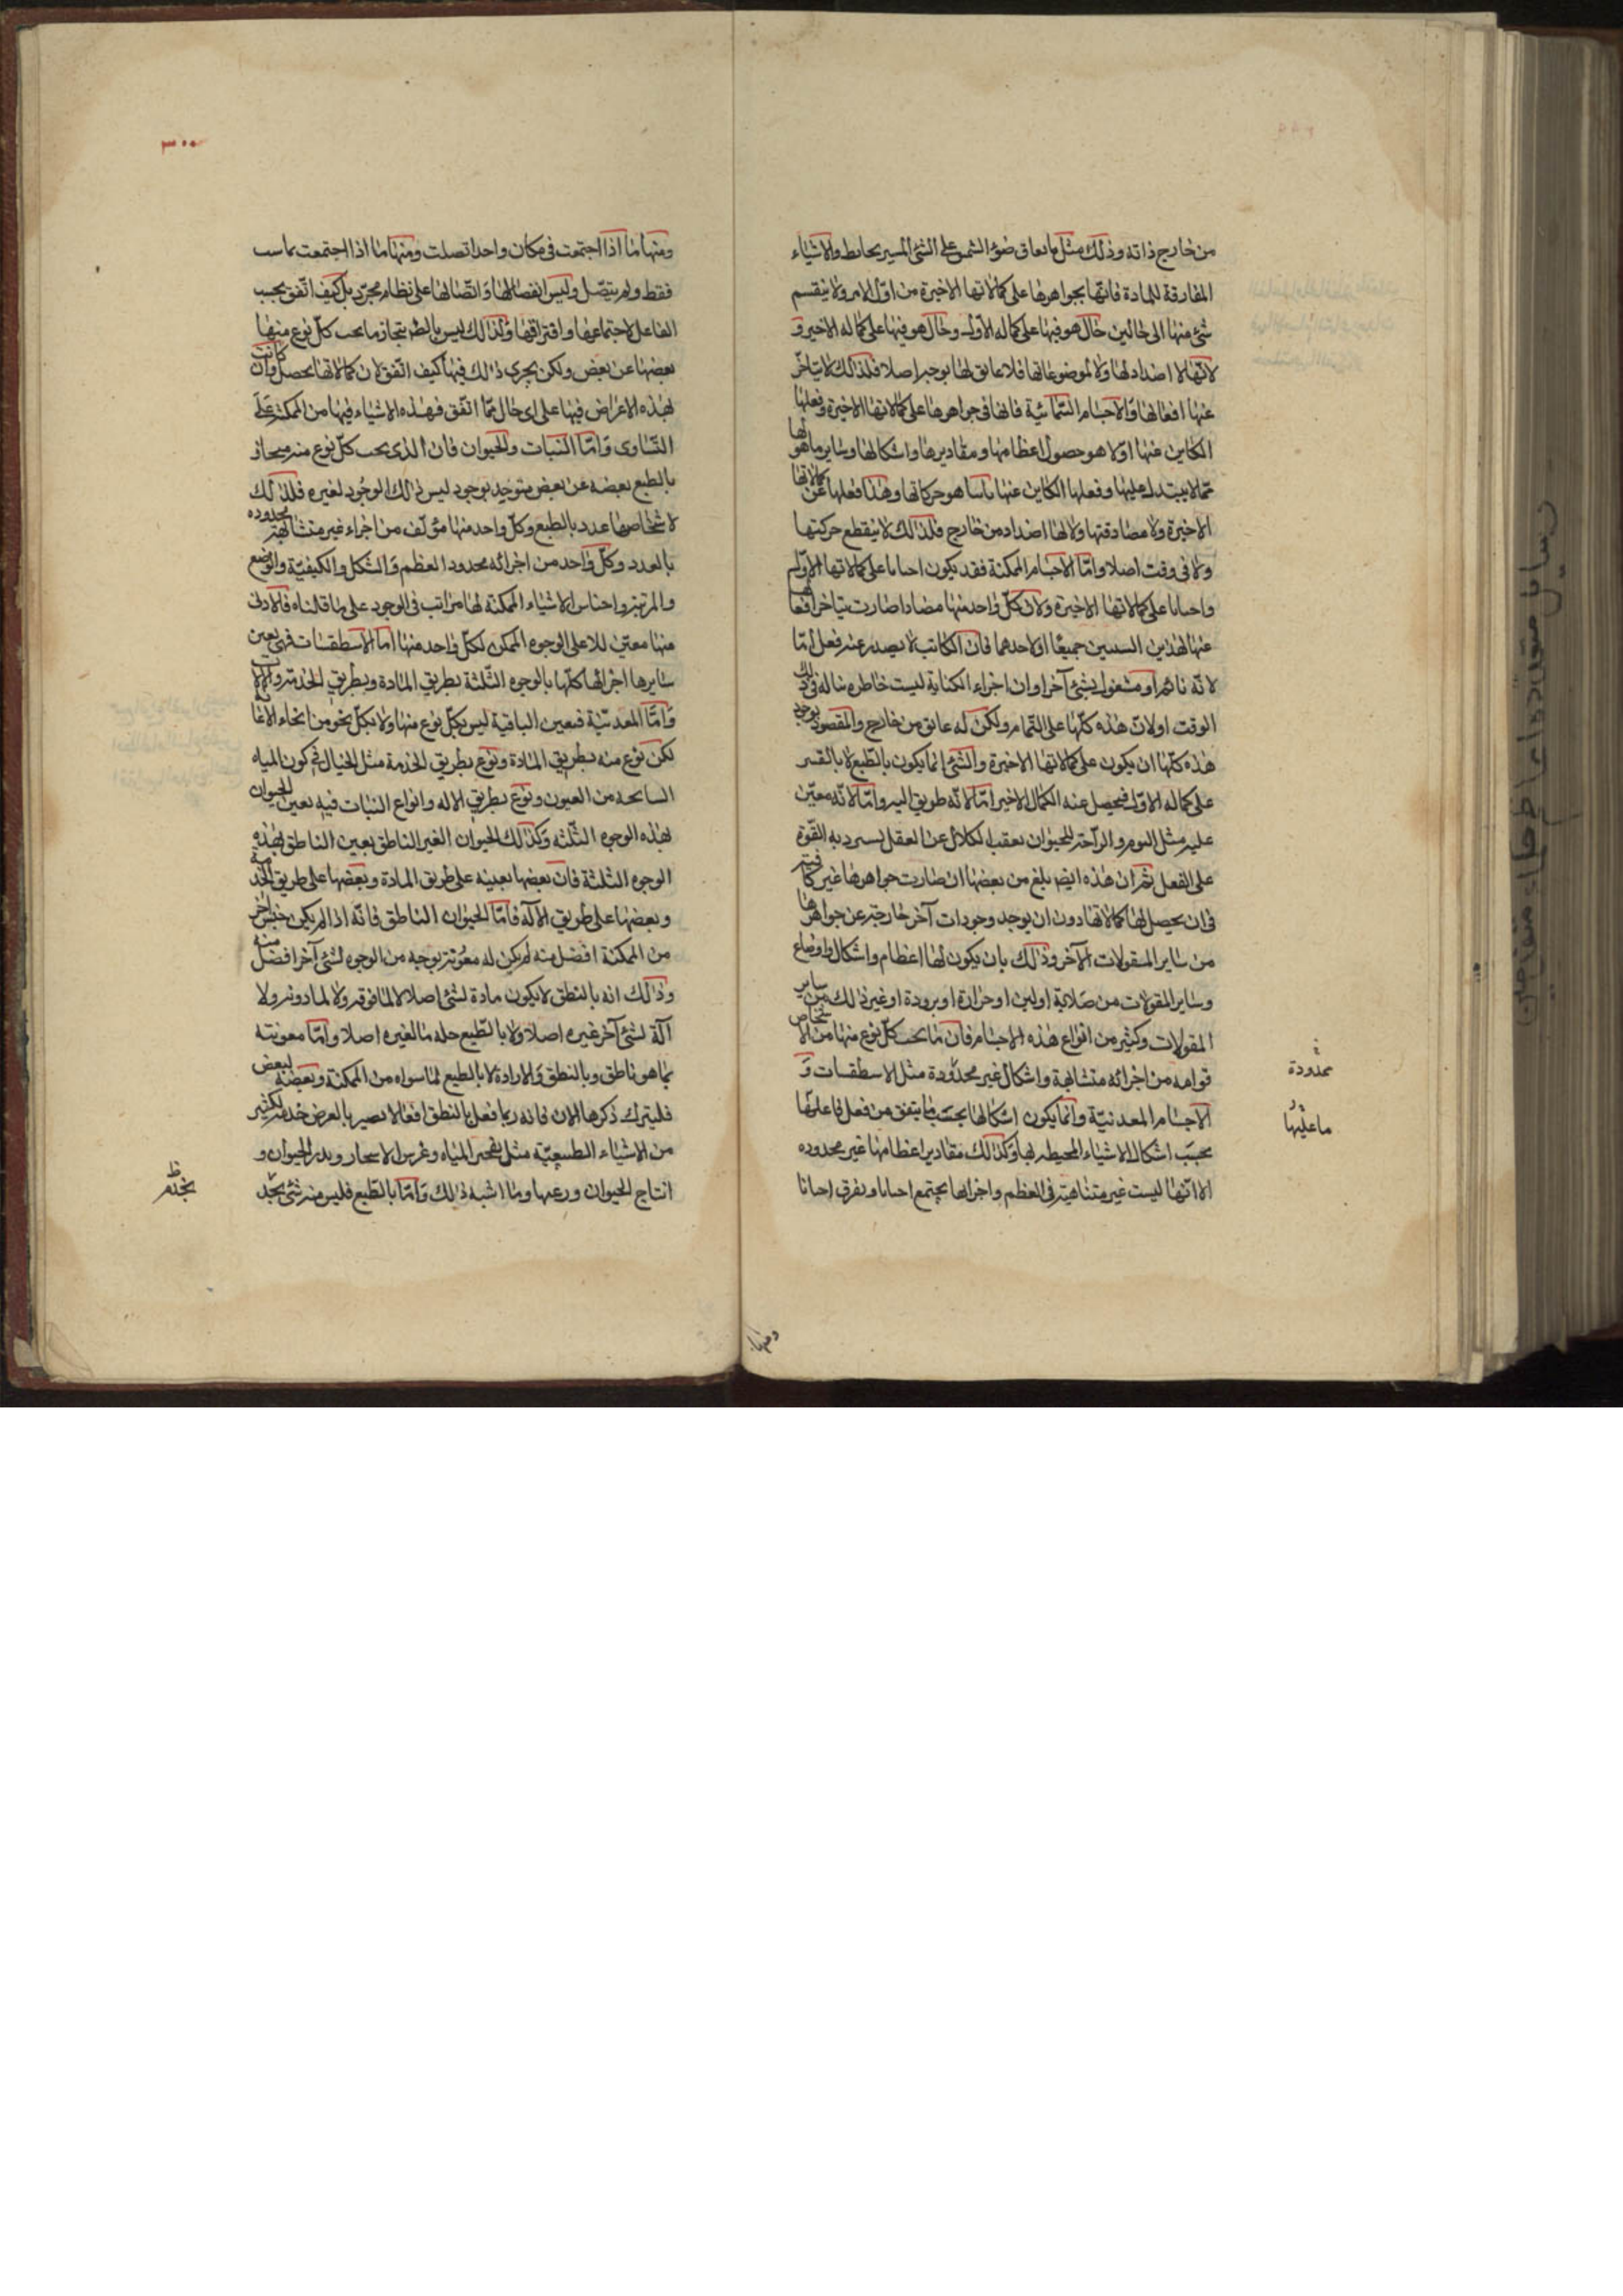 من خارج ذاته وذلك مثل ما يعاق ضوء الشمس على الشئ المستتر بحائط والاشياء
المفارقة للمادة فانها بجواهرها على كمالاتها الاخيرة من اول الامر ولا ينقسم
شئ منها الى حالين حال هو فيها على كماله الاول وحال هو فيها على كماله الاخير و
لانها لا اضداد لها ولا لموضوعاتها فلا عايق لها بوجه اصلا فلذلك لا يتاخر
عنها افعالها والاجسام السمائية فانها فى جواهرها على كمالاتها الاخيرة وفعلها
الكاين عنها اولا هو حصول اعظامها ومقاديرها واشكالها وساير ما هو لها
مما لا يتبدل عليها وفعلها الكاين عنها ثانيا هو حركاتها وهذا فعلها عن كمالاتها
الاخيرة ولا مضاد فيها ولا لها اضداد من خارج فلذلك لا ينقطع حركتها
ولا فى وقت اصلا واما الاجسام الممكنة فقد يكون احيانا على كمالاتها الاولى
واحيانا على كمالاتها الاخيرة ولان كل واحد منها مضادا صارت يتاخر افعالها
عنها لهذين السببين جميعا او لاحدهما فان الكاتب لا يصدر عنه فعل اما
لانه نائم او مشغول بشئ آخر او ان اجزاء الكتابة ليست خاطره بباله فى ذلك
الوقت او لان هذه كلها على التمام ولكن له عائق من خارج والمقصود بوجود
هذه كلها ان يكون على كمالاتها الاخيرة والشئ انما يكون بالطبع لا بالقسر
على كماله الاول فيحصل عنه الكمال الاخير اما لانه طريق اليه واما لانه معين
عليه مثل النوم والراحة للحيوان بعقب الكلال عن الفعل يسترد به القوة
على الفعل ثم ان هذه ايضا بلغ من بعضها ان صارت جواهرها غير كافية
فى ان يحصل لها كمالاتها دون ان يوجد وجودات آخر خارجة عن جواهرها
من ساير المقولات الآخر وذلك بان يكون لها اعظام واشكال واوضاع
وساير المقولات من صلابة او لين او حرارة او برودة او غير ذلك من ساير
المقولات وكثير من انواع هذه الاجسام فان ما تحت كل نوع منها من الاشخاص
قوامه من اجزائه متشابهة واشكال غير محدودة مثل الاسطقسات و
الاجسام المعدنية وانما يكون اشكالها بحسب ما يتفق من فعل فاعلها
بحسب اشكال الاشياء المحيطه بها وكذلك مقادير اعظامها غير محدوده
الا انها ليست غير متناهية فى العظم واجزائها يجتمع احيانا ويفرق احيانا
محدودة
فاعليها
ومنها
٣٠٠
ومنها ما اذا اجتمعت فى مكان واحد اتصلت ومنها ما اذا اجتمعت تماست
فقط ولم يتصل وليس انفصالها واتصالها على نظام مجرد بل كيف اتفق بحسب
الفاعل لاجتماعها وافتراقها ولذلك ليس بالط يتحاز ما تحت كل نوع منها
بعضها عن بعض ولكن يجرى ذلك فيها كيف اتفق لان كمالاتها يحصل وان كانت
لهذه الاعراض فيها على اى حال مما اتفق فهذه الاشياء فيها من الممكن على
التساوى واما النبات والحيوان فان الذى تحت كل نوع منه منحاز
بالطبع بعضه عن بعض متوحد بوجود ليس ذلك الوجود لغيره فلذلك
لاشخاصها عدد بالطبع وكل واحد منها مؤلف من اجزاء غير متشابهة محدوده
بالعدد وكل واحد من اجزائه محدود العظم والشكل والكيفية والوضع
والمرتبة واجناس الاشياء الممكنة لها مراتب فى الوجود على ما قلناه فالادنى
منها معين للاعلى الوجود الممكن لكل واحد منها اما الاسطقسات فهى يعين
سايرها اجزائها كلها بالوجوه الثلثة بطريق المادة وبطريق الخدمة والآلة
واما المعدنية فيعين الباقية ليس بكل نوع منها ولا بكل نحو من انحاء الاعانة
لكن نوع منه بطريق المادة ونوع بطريق الخدمة مثل الجبال فى كون المياه
السائحه من العيون ونوع بطريق الاله وانواع النبات فيه يعين الحيوان
بهذه الوجوه الثلثه وكذلك الحيوان الغير الناطق يعين الناطق بهذه
الوجوه الثلثة فان بعضها يعينه على طريق المادة وبعضها على طريق الخدمة
وبعضها على طريق الآلة فاما الحيوان الناطق فانه اذ لم يكن جنس آخر
من الممكنة افضل منه لم يكن له معونة بوجه من الوجوه لشئ آخر افضل منه
وذلك انه بالنطق لا يكون مادة لشئ اصلا لا لما فوقه ولا لما دونه ولا
آلة لشئ آخر غيره اصلا ولا بالطبع خدمة لغيره اصلا واما معونته
بما هو ناطق وبالنطق والارادة لا بالطبع لما سواه من الممكنة وبعضه لبعض
فليترك ذكرها الان فانه ربما فعل بالنطق افعالا تصير بالعرض خدمة لكثير
من الاشياء الطبيعية مثل تفجير المياه وغرس الاشجار وبذر الحبوب و
انتاج الحيوان ورعيها وما اشبه ذلك واما بالطبع فليس منه شئ يخدم
يخدم ظ